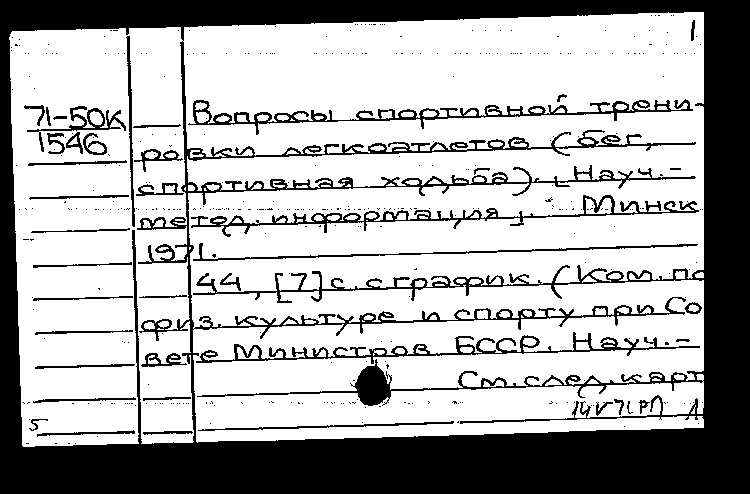 1
71-50К
1546
Вопросы спортивной трени-
ровки легкоатлетов (бег,
спортивная ходьба). [Науч.-
метод. информация]. Минск
1971.
44, [7] с. с график. (Ком. по
физ. культуре и спорту при Со
вете Министров БССР. Науч.-
См. след. карт
14 V 71 РП
5